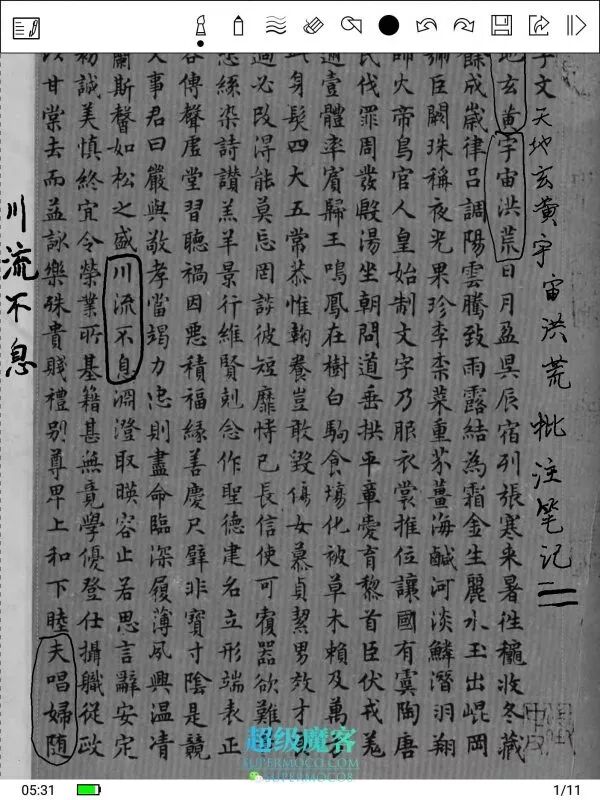 字文
天地玄黄宇宙洪荒 批注笔记
地玄黃宇宙洪荒日月盈昃辰宿列張寒来暑徃穐收冬藏
餘成嵗律呂調陽雲騰致雨露結為霜金生麗水玉出崐岡
號巨闕珠稱夜光果珍李柰菜重芥薑海鹹河淡鱗潛羽翔
師火帝鳥官人皇始制文字乃服衣裳推位讓國有虞陶唐
民伐罪周發殷湯坐朝問道垂拱平章愛育黎首臣伏戎羌
邇壹體率賓歸王鳴鳳在樹白駒食場化被草木賴及萬方
此身髮四大五常恭惟鞠養豈敢毀傷女慕貞潔男效才
過必改得能莫忘罔談彼短靡恃己長信使可覆器欲難
悲絲染詩讃羔羊景行維賢剋念作聖德建名立形端表正
谷傳聲虛堂習聽禍因惡積福緣善慶尺璧非寶寸陰是競
父事君曰嚴與敬孝當竭力忠則盡命臨深履薄夙興溫凊
蘭斯馨如松之盛川流不息淵澄取暎容止若思言辭安定
初誠美慎終宜令榮業所基籍甚無竟學優登仕攝職從政
以甘棠去而益詠樂殊貴賤禮別尊卑上和下睦夫唱婦随
川流不息
超级魔客
SUPERMOCO.COM
SUPERMOCO8
05:31
1/11